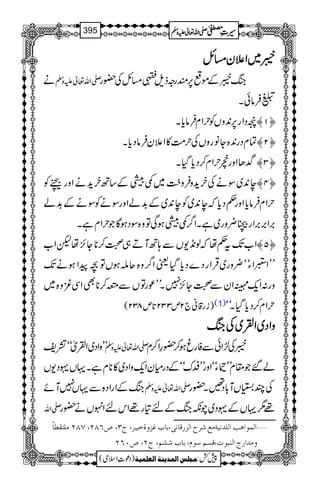 سیرتِ مصطفی صلی اللہ تعالیٰ علیہ وسلم 395
خیبر میں اعلان مسائل
جنگ خیبر کے موقع پر مندرجہ ذیل فقہی مسائل کی حضور صلی اللہ تعالیٰ علیہ وسلم نے
تبلیغ فرمائی۔
﴿۱﴾ پنجہ دار پرندوں کو حرام فرمایا۔
﴿۲﴾ تمام درندہ جانوروں کی حرمت کا اعلان فرما دیا۔
﴿۳﴾ گدھا اور خچر حرام کر دیا گیا۔
﴿۴﴾ چاندی سونے کی خرید و فروخت میں کمی بیشی کے ساتھ خریدنے اور بیچنے کو
حرام فرمایا اور حکم دیا کہ چاندی کو چاندی کے بدلے اور سونے کو سونے کے بدلے
برابر برابر بیچنا ضروری ہے۔ اگر کمی بیشی ہوگی تو وہ سود ہوگا جو حرام ہے۔
﴿۵﴾ اب تک یہ حکم تھا کہ لونڈیوں سے ہاتھ آتے ہی صحبت کرنا جائز تھا لیکن اب
’’استبراء‘‘ ضروری قرار دے دیا گیا یعنی اگر وہ حاملہ ہوں تو بچہ پیدا ہونے تک
ورنہ ایک مہینہ ان سے صحبت جائز نہیں۔ ’’عورتوں سے متعہ کرنا بھی اسی غزوہ میں
حرام کر دیا گیا۔‘‘(1) (زرقانی ج۲ ص۲۳۳ تا ص۲۳۸)
وادی القریٰ کی جنگ
خیبر کی لڑائی سے فارغ ہو کر حضور اکرم صلی اللہ تعالیٰ علیہ وسلم ’’وادی القریٰ‘‘ تشریف
لے گئے جو مقام ’’تیماء‘‘ اور ’’فدک‘‘ کے درمیان ایک وادی کا نام ہے۔ یہاں یہودیوں
کی چند بستیاں آباد تھیں۔ حضور صلی اللہ تعالیٰ علیہ وسلم جنگ کے ارادہ سے یہاں نہیں آئے
تھے مگر یہاں کے یہودی چونکہ جنگ کے لئے تیار تھے اس لئے انہوں نے حضور صلی اللہ
......المواهب اللدنیةمع شرح الزرقانی،باب غزوةخیبر، ج٣، ص٢٨٦، ٢٨٧ ملتقطاً
ومدارج النبوت،قسم سوم، باب ششم، ج٢، ص ٢٦٠
پیش کش: مجلس المدینة العلمیة (دعوتِ اسلامی)